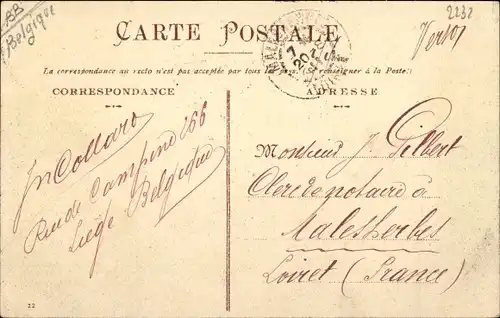 BB
Belgique
2232
Verso!
CARTE POSTALE
La correspondance au recto n'est pas acceptée par tous les pays. (Se renseigner à la Poste)
CORRESPONDANCE
ADRESSE
Jn Collard
Rue de Campine 166
Liège Belgique
Monsieur J. Gilbert
Clerc de notaire à
Malesherbes
Loiret (France)
22